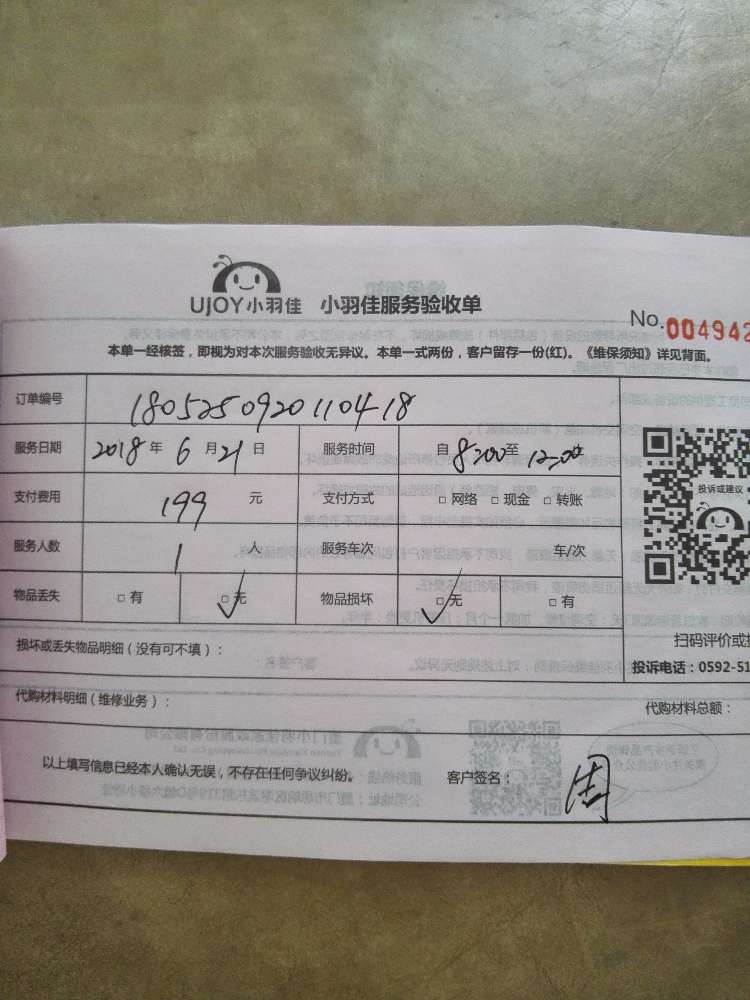 UJOY小羽佳 小羽佳服务验收单
No.004942
本单一经核签，即视为对本次服务验收无异议。本单一式两份，客户留存一份(红)。《维保须知》详见背面。
订单编号 180525092011041 8
服务日期 2018年 6月21日 服务时间 自 8:00至 12:00
支付费用 199 元 支付方式 □网络 □现金 □转账
服务人数 1 人 服务车次 车/次
投诉或建议
物品丢失 □有 □无 物品损坏 □无 □有
损坏或丢失物品明细（没有可不填）：
扫码评价或
投诉电话：0592-51
代购材料明细（维修业务）：
代购材料总额：
以上填写信息已经本人确认无误，不存在任何争议纠纷。 客户签名： 周